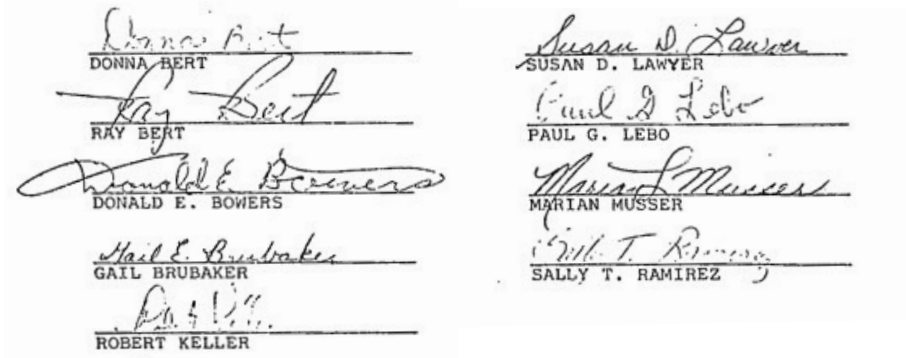 Donna Bert
DONNA BERT
Ray Bert
RAY BERT
Donald E. Bowers
DONALD E. BOWERS
Gail E. Brubaker
GAIL BRUBAKER
ROBERT KELLER
Susan D. Lawyer
SUSAN D. LAWYER
Paul G Lebo
PAUL G. LEBO
Marian L Musser
MARIAN MUSSER
T. Ramirez
SALLY T. RAMIREZ